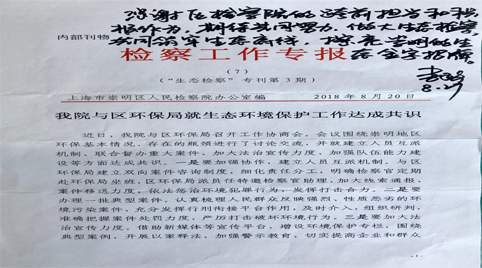 内部刊物
检察工作专报
（7）
（"生态检察"专刊第3期）
上海市崇明区人民检察院办公室编 2018年8月20日
我院与区环保局就生态环境保护工作达成共识
近日，我院与区环保局召开工作协商会。会议围绕崇明地区
环保基本情况、存在的瓶颈进行了讨论交流，并就建立人员互派
机制、联合督办重大案件、加大法治宣传力度、加强队伍能力建
设等方面达成共识。一是要加强协作，建立人员互派机制、与区
环保局建立双向案件咨询制度，细化责任分工，明确检察官定期
赴环保局坐班，区环保局派员任特邀检察官助理，加大线索通报、
案件移送力度，依法惩治环境犯罪行为，发挥打击合力。二是要
办理一批典型案件，认真梳理人民群众反映强烈、性质恶劣的环
境污染案件，充分发挥行刑衔接平台作用，及时介入，组织研判，
准确把握案件处罚力度，严厉打击破坏环境行为。三是要加大法
治宣传力度，借助新媒体等宣传平台，增设环境保护专栏，围绕
典型案例，开展以案释法，加强警示教育，切实提高企业和群众
8.27